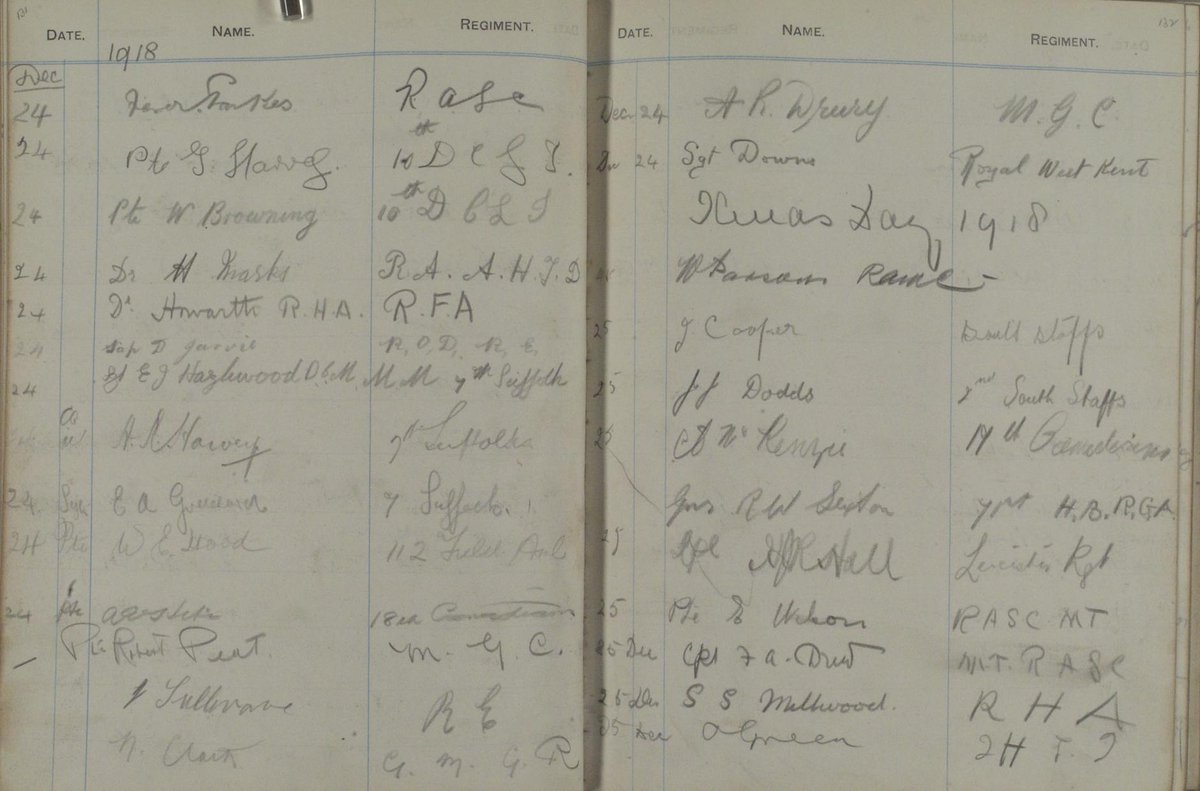 131
DATE. NAME. REGIMENT.
1918
Dec
24 R A S C
24 Pte G. Harvey. 10th D C L I.
24 Pte W Browning 10th D C L I
24 Dr H Marks R.A. A.H.T.D
24 Dr. Howarth R.H.A. R.F.A
24 Sap D Jarvis R.O.D. R.E.
24 Sgt E J Hazlewood D.C.M M M 7th Suffolk
A.R. Harvey 7th Suffolks
24 E A 7 Suffolk.
24 Pte W E Wood 112 Field Amb
24 Pte 18th Canadians
Pte Robert Peat. M. G. C.
R E
N. Clark G. M. G. R
132
DATE. NAME. REGIMENT.
Dec 24 A R Drury M.G.C.
Dec 24 Sgt Downs Royal West Kent
Xmas Day 1918
W Parsons RAMC
25 J. Cooper South Staffs
25 J J Dodds 2nd South Staffs
25 McKenzie 19th Canadians
Gnr R W Sexton 71st H.B. R.G.A.
25 Hall Leicester Rgt
25 Pte E RASC MT
25 Dec Cpl F A. M.T. R A S C
25 Dec S S Millwood. R H A
25 Dec O Green